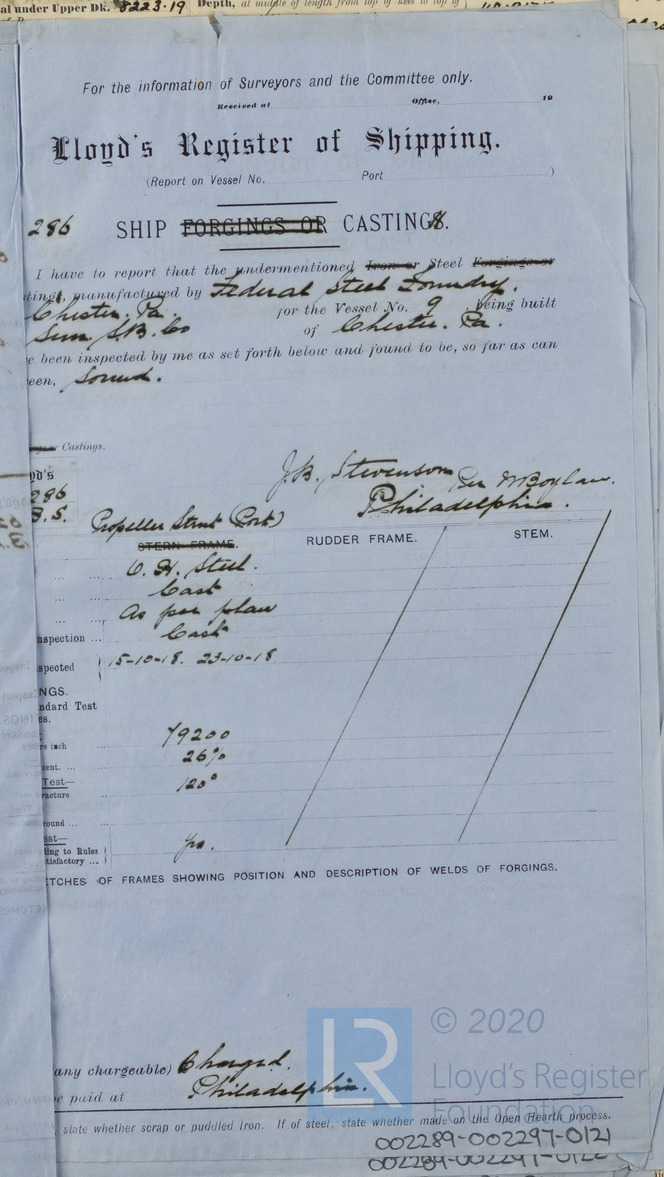 al under Upper Dk. 8223.19 Depth, at middle of length from top of keel to top of
For the information of Surveyors and the Committee only.
Received at Office, 19
Lloyd's Register of Shipping.
(Report on Vessel No. Port )
286 SHIP FORGINGS OR CASTINGS.
I have to report that the undermentioned Iron or Steel Forgings or
tings, manufactured by Federal Steel Foundry,
Chester, Pa. for the Vessel No. 9, being built
Sun S.B. Co of Chester, Pa.
e been inspected by me as set forth below and found to be, so far as can
een, Sound.
Castings.
yd's
286
B.S.
J.B. Stevenson Per W Boylan.
Philadelphia.
Propeller Strut (Port)
STERN FRAME. RUDDER FRAME. STEM.
O.H. Steel.
Cast
As per plan
nspection ... Cast
spected 15-10-18. 23-10-18
NGS.
ndard Test
es.
re inch 79200
ent. ... 26%
Test— 120°
racture
ound ...
est—
ding to Rules
tisfactory ... yes.
ETCHES OF FRAMES SHOWING POSITION AND DESCRIPTION OF WELDS OF FORGINGS.
© 2020
LR
Lloyd's Register
Foundation
any chargeable) Charged.
e paid at Philadelphia.
state whether scrap or puddled Iron. If of steel, state whether made on the Open Hearth process.
002289-002297-0121